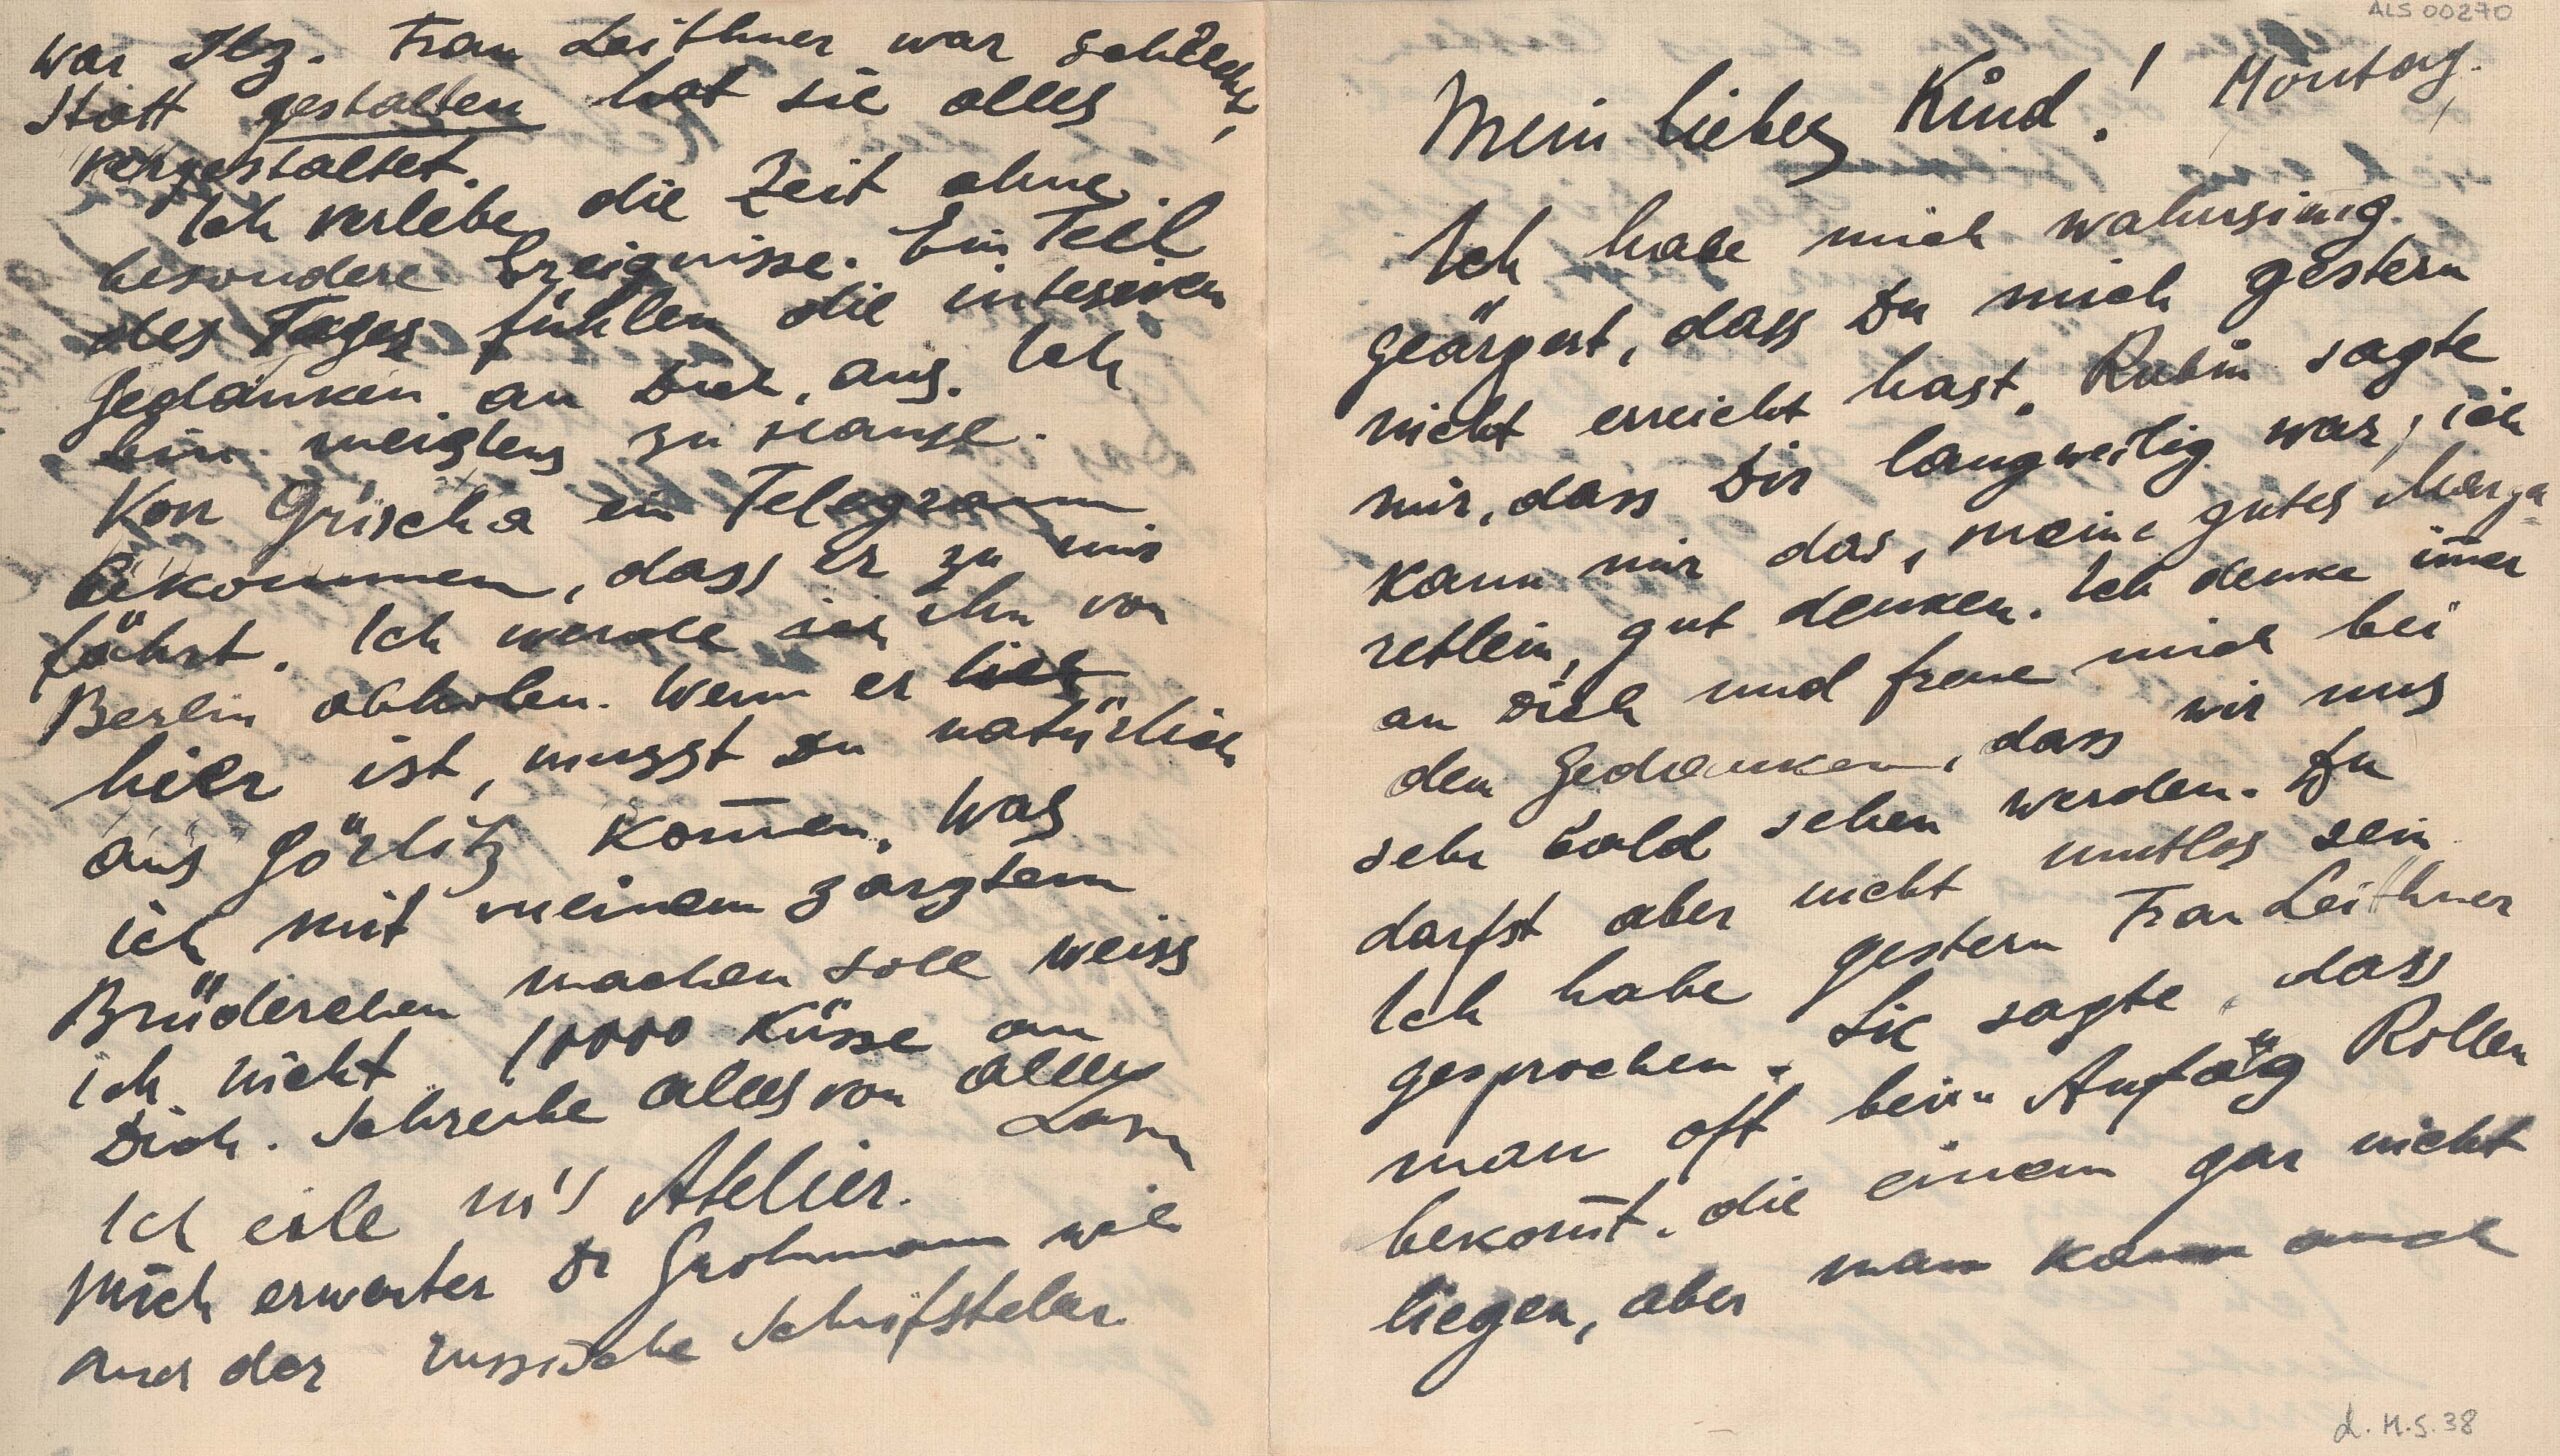 ALS 00270
Montag.
Mein liebes Kind!
Ich habe mich wahnsinig
geärgert, dass Du mich gestern
nicht erreicht hast. Rubin sagte
mir, dass Dir langweilig war, ich
kann mir das, meine gutes Marga
retlein, gut denken. Ich denke im̅er
an Dich und freue mich bei
dem Gedanken, dass wir uns
sehr bald sehen werden. Du
darfst aber nicht mutlos sein
Ich habe gestern Frau Leithner
gesprochen. Sie sagte, dass
man oft beim Anfäg Rollen
bekom̅t, die einem gar nicht
liegen, aber man kann auch
war Ilz. Frau Leithner war schlecht,
statt gestalten hat sie alles
vergestaltet.
Ich verlebe die Zeit ohne
besondere Ereignisse. Ein Teil
des Tages fühlen die intesiven
Gedanken an Dich, aus. Ich
bin meistens zu Hause.
Von Grischa ein Telegramm
bekommen, dass er zu mir
fährt. Ich werde ich ihn von
Berlin abholen. Wenn er
hier ist, musst Du natürlich
aus Görlitz kom̅en. Was
ich mit meinem
Brüderchen machen soll weiss
ich nicht. 10000 Küsse an
Dich. Schreibe alles von alles
Lasar
Ich eile in's Atelier.
Mich erwartet Dr Grohmann
und der russische Schrifsteler.
L.M.S. 38